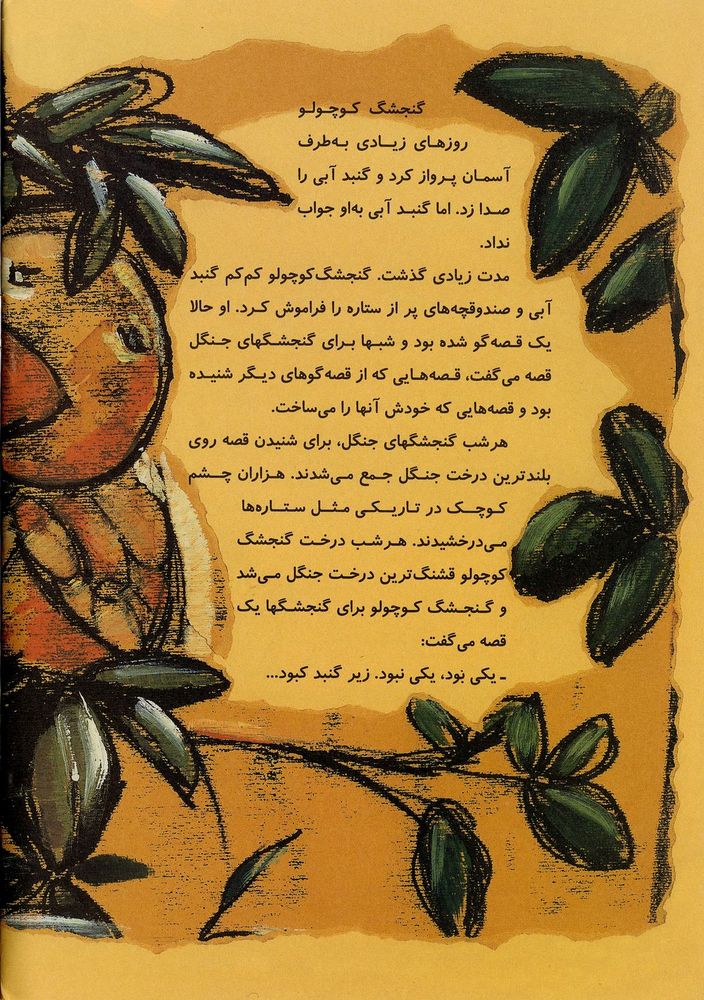 گنجشگ کوچولو
روزهای زیادی به‌طرف
آسمان پرواز کرد و گنبد آبی را
صدا زد. اما گنبد آبی به‌او جواب
نداد.
مدت زیادی گذشت. گنجشگ‌کوچولو کم‌کم گنبد
آبی و صندوقچه‌های پر از ستاره را فراموش کرد. او حالا
یک قصه‌گو شده بود و شبها برای گنجشگهای جنگل
قصه می‌گفت، قصه‌هایی که از قصه‌گوهای دیگر شنیده
بود و قصه‌هایی که خودش آنها را می‌ساخت.
هرشب گنجشگهای جنگل، برای شنیدن قصه روی
بلندترین درخت جنگل جمع می‌شدند. هزاران چشم
کوچک در تاریکی مثل ستاره‌ها
می‌درخشیدند. هرشب درخت گنجشگ
کوچولو قشنگ‌ترین درخت جنگل می‌شد
و گنجشگ کوچولو برای گنجشگها یک
قصه می‌گفت:
ـ یکی بود، یکی نبود. زیر گنبد کبود...